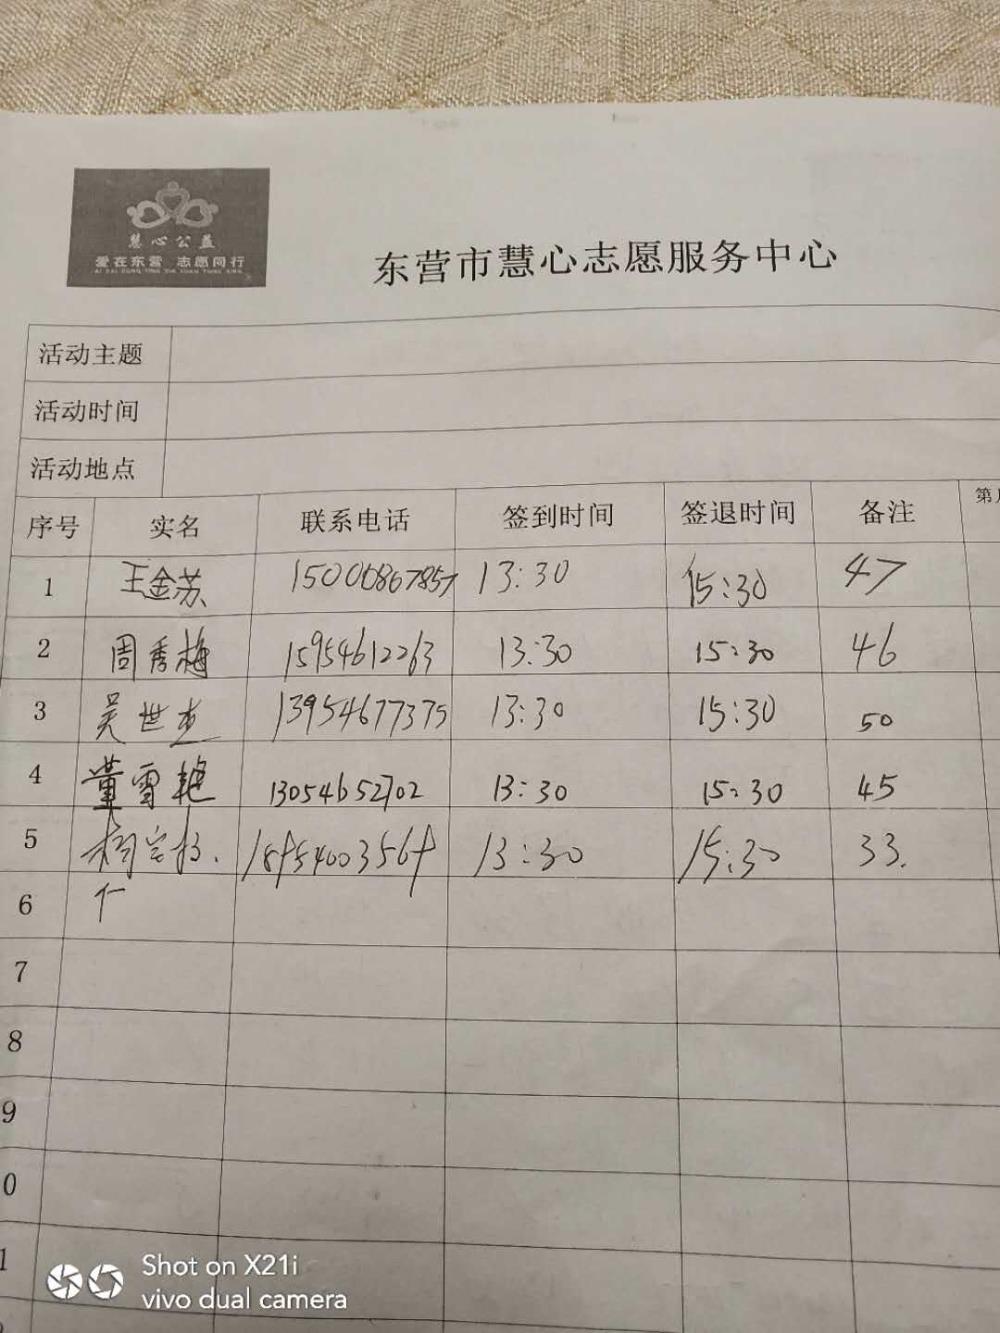 慧心公益
爱在东营 志愿同行
AI ZAI DONG YING ZHI YUAN TONG XING
东营市慧心志愿服务中心
活动主题
活动时间
活动地点
序号 实名 联系电话 签到时间 签退时间 备注 第
1 王金苏 15006867857 13:30 15:30 47
2 周秀梅 15954612263 13:30 15:30 46
3 吴世杰 13954677375 13:30 15:30 50
4 董雪艳 13054652702 13:30 15:30 45
5 13:30 15:30 33.
6
7
8
9
0
1
Shot on X21i
vivo dual camera